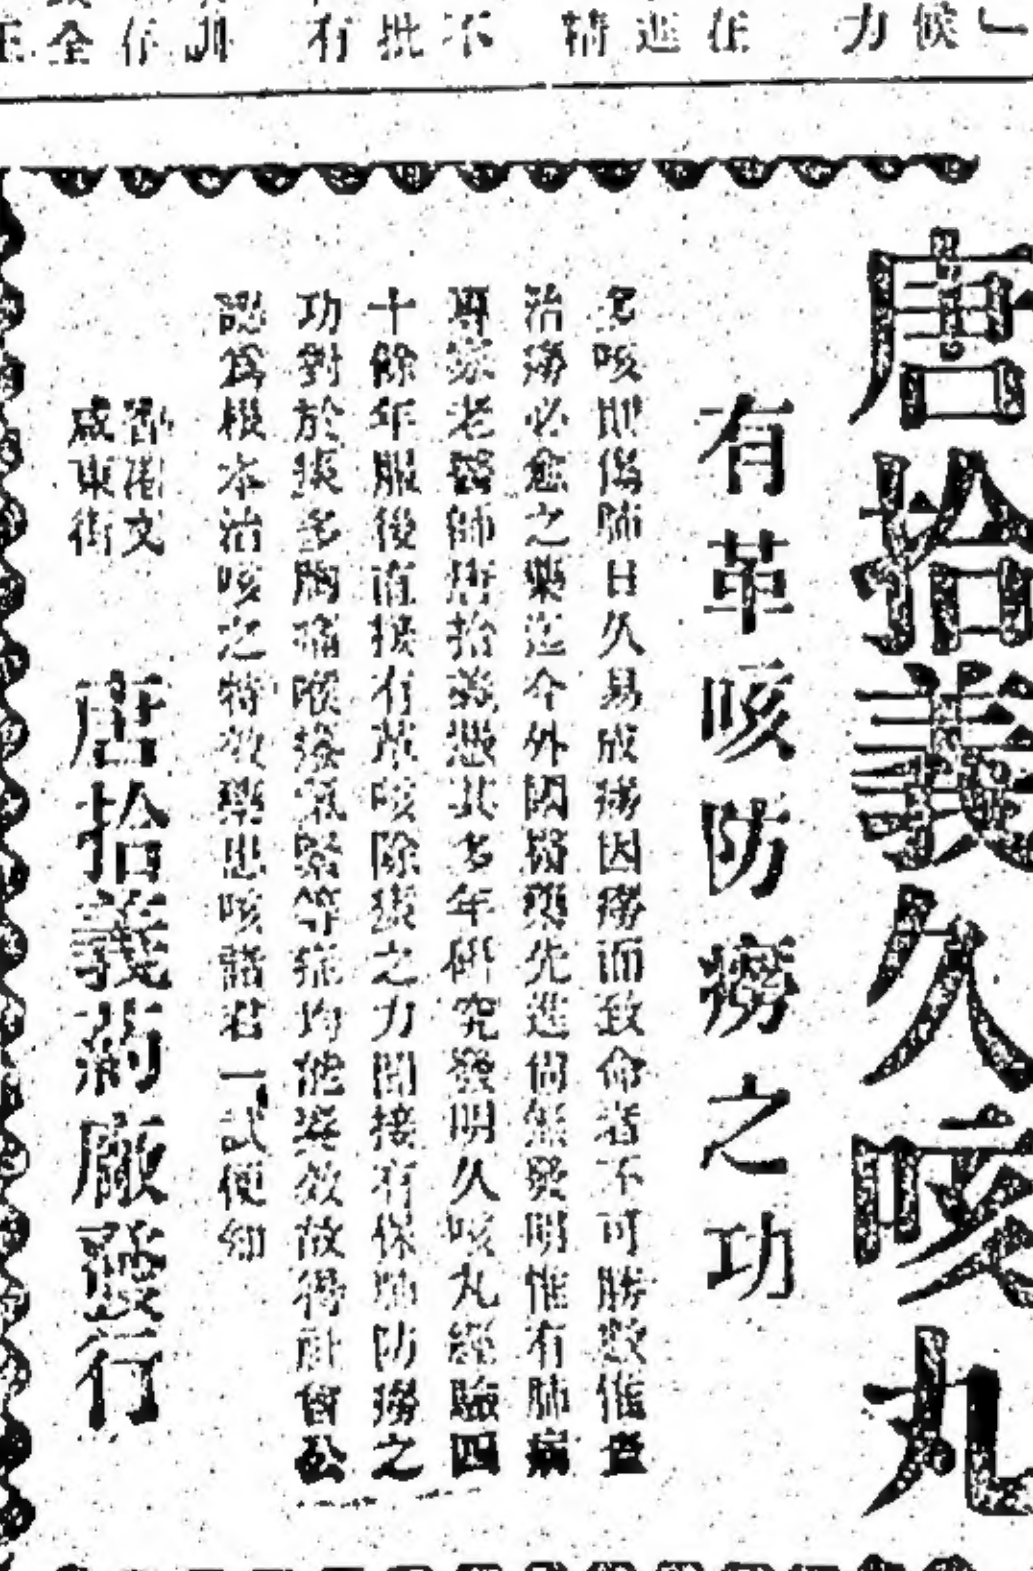 力候
精進在
有批不
全仔訓
唐拾義久咳丸
有革咳防癆之功
多咳則傷肺日久易成癆因癆而致命者不可勝數惟查
治癆必愈之藥迄今外國醫藥先進尚無發明惟有肺病
專家老醫師唐拾義憑其多年研究發明久咳丸經驗四
十餘年服後直接有革咳除痰之力間接有保肺防癆之
功對於痰多胸痛喉癢氣緊等症均能奏效故得社會公
認為根本治咳之特效藥患咳諸君一試便知
香港文
咸東街
唐拾義葯廠發行